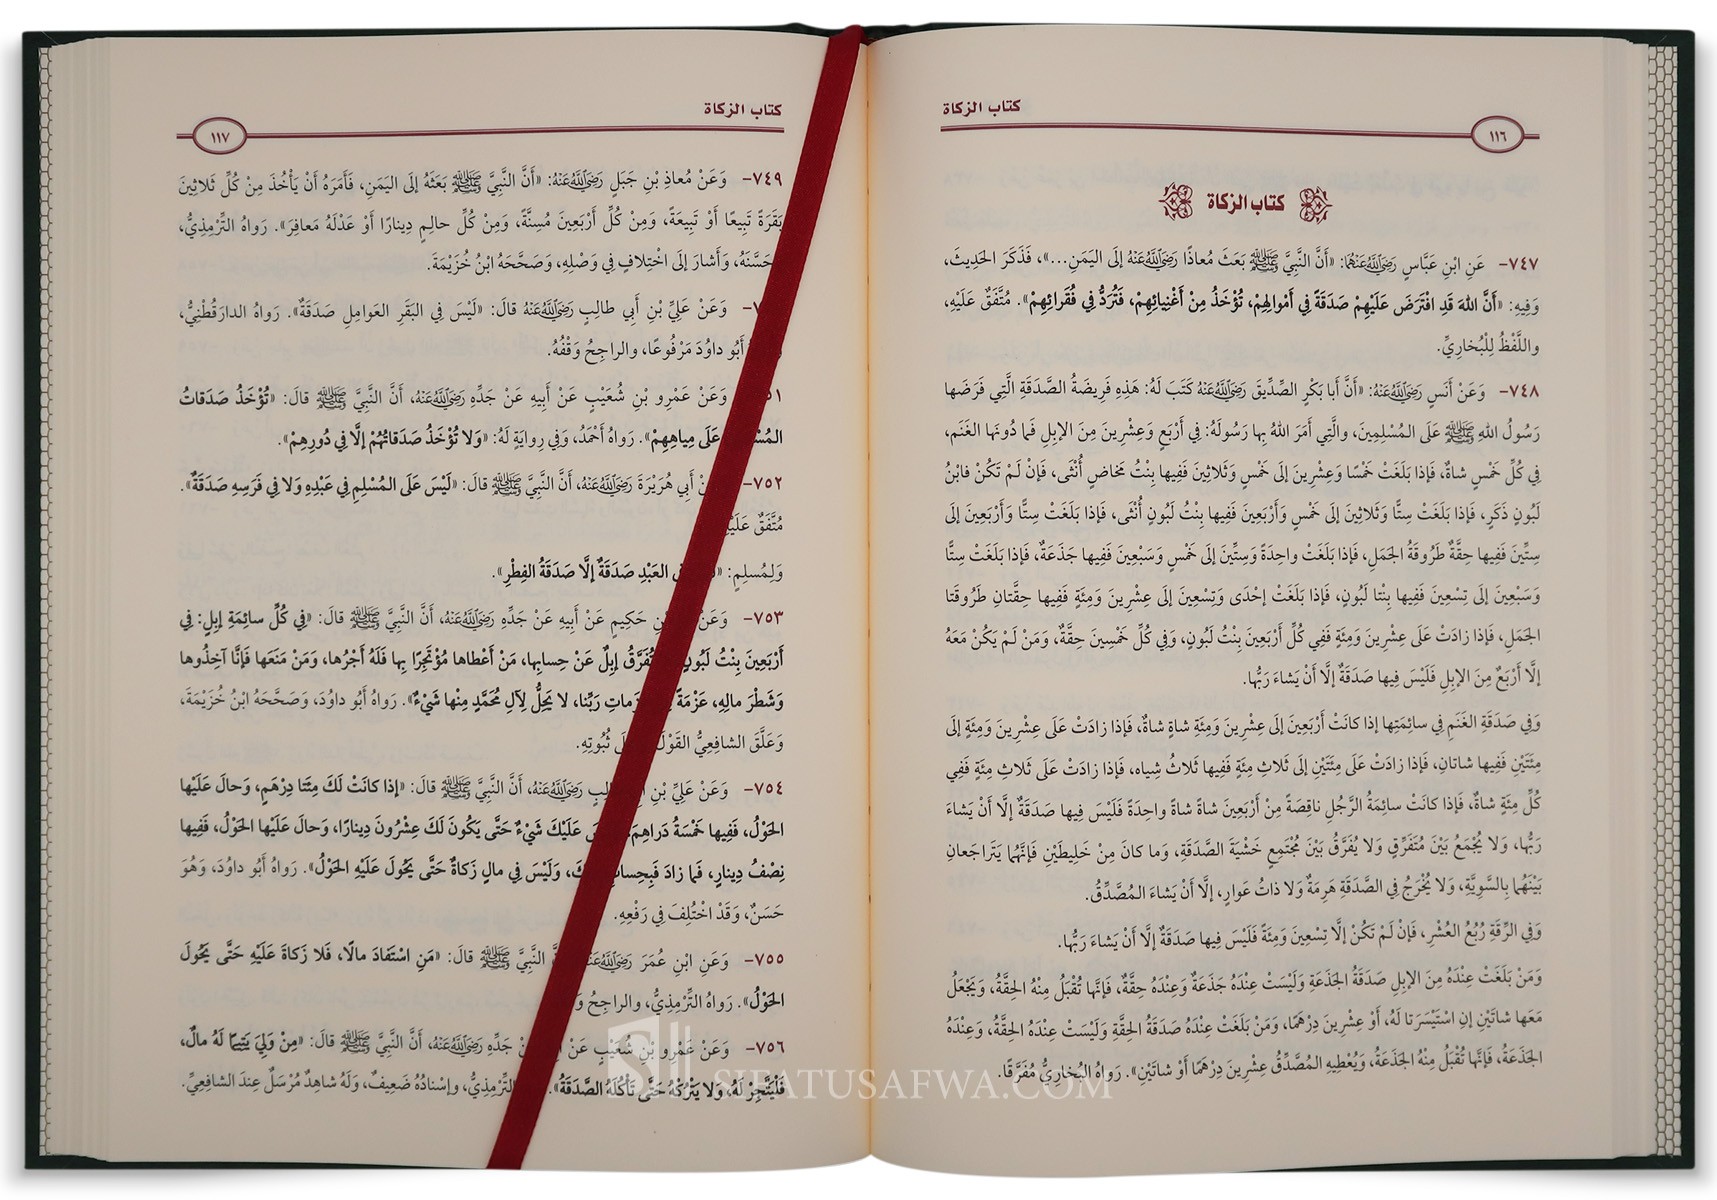 كتاب الزكاة
١١٦
كتاب الزكاة
٧٤٧- عَنِ ابْنِ عَبَّاسٍ رَضِيَ اللَّهُ عَنْهُمَا: «أَنَّ النَّبِيَّ ﷺ بَعَثَ مُعاذًا رَضِيَ اللَّهُ عَنْهُ إِلَى اليَمَنِ...»، فَذَكَرَ الحَدِيثَ،
وَفِيهِ: «أَنَّ اللهَ قَدِ افْتَرَضَ عَلَيْهِمْ صَدَقَةً فِي أَمْوالِهِمْ، تُؤْخَذُ مِنْ أَغْنِيائِهِمْ، فَتُرَدُّ فِي فُقَرائِهِمْ». مُتَّفَقٌ عَلَيْهِ،
واللَّفْظُ لِلْبُخارِيِّ.
٧٤٨- وَعَنْ أَنَسٍ رَضِيَ اللَّهُ عَنْهُ: «أَنَّ أَبا بَكْرٍ الصِّدِّيقَ رَضِيَ اللَّهُ عَنْهُ كَتَبَ لَهُ: هَذِهِ فَرِيضَةُ الصَّدَقَةِ الَّتِي فَرَضَها
رَسُولُ اللهِ ﷺ عَلَى المُسْلِمِينَ، والَّتِي أَمَرَ اللهُ بِها رَسُولَهُ: فِي أَرْبَعٍ وَعِشْرِينَ مِنَ الإِبِلِ فَما دُونَها الغَنَمُ،
فِي كُلِّ خَمْسٍ شاةٌ، فَإِذا بَلَغَتْ خَمْسًا وَعِشْرِينَ إِلَى خَمْسٍ وَثَلاثِينَ فَفِيها بِنْتُ مَخاضٍ أُنْثَى، فَإِنْ لَمْ تَكُنْ فابْنُ
لَبُونٍ ذَكَرٍ، فَإِذا بَلَغَتْ سِتًّا وَثَلاثِينَ إِلَى خَمْسٍ وَأَرْبَعِينَ فَفِيها بِنْتُ لَبُونٍ أُنْثَى، فَإِذا بَلَغَتْ سِتًّا وَأَرْبَعِينَ إِلَى
سِتِّينَ فَفِيها حِقَّةٌ طَرُوقَةُ الجَمَلِ، فَإِذا بَلَغَتْ واحِدَةً وَسِتِّينَ إِلَى خَمْسٍ وَسَبْعِينَ فَفِيها جَذَعَةٌ، فَإِذا بَلَغَتْ سِتًّا
وَسَبْعِينَ إِلَى تِسْعِينَ فَفِيها بِنْتا لَبُونٍ، فَإِذا بَلَغَتْ إِحْدَى وَتِسْعِينَ إِلَى عِشْرِينَ وَمِئَةٍ فَفِيها حِقَّتانِ طَرُوقَتا
الجَمَلِ، فَإِذا زادَتْ عَلَى عِشْرِينَ وَمِئَةٍ فَفِي كُلِّ أَرْبَعِينَ بِنْتُ لَبُونٍ، وَفِي كُلِّ خَمْسِينَ حِقَّةٌ، وَمَنْ لَمْ يَكُنْ مَعَهُ
إِلَّا أَرْبَعٌ مِنَ الإِبِلِ فَلَيْسَ فِيها صَدَقَةٌ إِلَّا أَنْ يَشاءَ رَبُّها.
وَفِي صَدَقَةِ الغَنَمِ فِي سائِمَتِها إِذا كانَتْ أَرْبَعِينَ إِلَى عِشْرِينَ وَمِئَةِ شاةٍ شاةٌ، فَإِذا زادَتْ عَلَى عِشْرِينَ وَمِئَةٍ إِلَى
مِئَتَيْنِ فَفِيها شاتانِ، فَإِذا زادَتْ عَلَى مِئَتَيْنِ إِلَى ثَلاثِ مِئَةٍ فَفِيها ثَلاثُ شِياه، فَإِذا زادَتْ عَلَى ثَلاثِ مِئَةٍ فَفِي
كُلِّ مِئَةٍ شاةٌ، فَإِذا كانَتْ سائِمَةُ الرَّجُلِ ناقِصَةً مِنْ أَرْبَعِينَ شاةً شاةً واحِدَةً فَلَيْسَ فِيها صَدَقَةٌ إِلَّا أَنْ يَشاءَ
رَبُّها، وَلا يُجْمَعُ بَيْنَ مُتَفَرِّقٍ وَلا يُفَرَّقُ بَيْنَ مُجْتَمِعٍ خَشْيَةَ الصَّدَقَةِ، وَما كانَ مِنْ خَلِيطَيْنِ فَإِنَّهُما يَتَراجَعانِ
بَيْنَهُما بِالسَّوِيَّةِ، وَلا يُخْرَجُ فِي الصَّدَقَةِ هَرِمَةٌ وَلا ذاتُ عَوارٍ، إِلَّا أَنْ يَشاءَ المُصَّدِّقُ.
وَفِي الرِّقَةِ رُبُعُ العُشْرِ، فَإِنْ لَمْ تَكُنْ إِلَّا تِسْعِينَ وَمِئَةً فَلَيْسَ فِيها صَدَقَةٌ إِلَّا أَنْ يَشاءَ رَبُّها.
وَمَنْ بَلَغَتْ عِنْدَهُ مِنَ الإِبِلِ صَدَقَةُ الجَذَعَةِ وَلَيْسَتْ عِنْدَهُ جَذَعَةٌ وَعِنْدَهُ حِقَّةٌ، فَإِنَّها تُقْبَلُ مِنْهُ الحِقَّةُ، وَيَجْعَلُ
مَعَها شاتَيْنِ إِنِ اسْتَيْسَرَتا لَهُ، أَوْ عِشْرِينَ دِرْهَمًا، وَمَنْ بَلَغَتْ عِنْدَهُ صَدَقَةُ الحِقَّةِ وَلَيْسَتْ عِنْدَهُ الحِقَّةُ، وَعِنْدَهُ
الجَذَعَةُ، فَإِنَّها تُقْبَلُ مِنْهُ الجَذَعَةُ، وَيُعْطِيهِ المُصَّدِّقُ عِشْرِينَ دِرْهَمًا أَوْ شاتَيْنِ». رَواهُ البُخارِيُّ مُفَرَّقًا.
كتاب الزكاة
١١٧
٧٤٩- وَعَنْ مُعاذِ بْنِ جَبَلٍ رَضِيَ اللَّهُ عَنْهُ: «أَنَّ النَّبِيَّ ﷺ بَعَثَهُ إِلَى اليَمَنِ، فَأَمَرَهُ أَنْ يَأْخُذَ مِنْ كُلِّ ثَلاثِينَ
بَقَرَةً تَبِيعًا أَوْ تَبِيعَةً، وَمِنْ كُلِّ أَرْبَعِينَ مُسِنَّةً، وَمِنْ كُلِّ حالِمٍ دِينارًا أَوْ عَدْلَهُ مَعافِرَ». رَواهُ التِّرْمِذِيُّ،
وَحَسَّنَهُ، وَأَشارَ إِلَى اخْتِلافٍ فِي وَصْلِهِ، وَصَحَّحَهُ ابْنُ خُزَيْمَةَ.
وَعَنْ عَلِيِّ بْنِ أَبِي طالِبٍ رَضِيَ اللَّهُ عَنْهُ قالَ: «لَيْسَ فِي البَقَرِ العَوامِلِ صَدَقَةٌ». رَواهُ الدارَقُطْنِيُّ،
أَبُو داوُدَ مَرْفُوعًا، والراجِحُ وَقْفُهُ.
وَعَنْ عَمْرِو بْنِ شُعَيْبٍ عَنْ أَبِيهِ عَنْ جَدِّهِ رَضِيَ اللَّهُ عَنْهُ، أَنَّ النَّبِيَّ ﷺ قالَ: «تُؤْخَذُ صَدَقاتُ
عَلَى مِياهِهِمْ». رَواهُ أَحْمَدُ، وَفِي رِوايَةٍ لَهُ: «وَلا تُؤْخَذُ صَدَقاتُهُمْ إِلَّا فِي دُورِهِمْ».
٧٥٢- أَبِي هُرَيْرَةَ رَضِيَ اللَّهُ عَنْهُ، أَنَّ النَّبِيَّ ﷺ قالَ: «لَيْسَ عَلَى المُسْلِمِ فِي عَبْدِهِ وَلا فِي فَرَسِهِ صَدَقَةٌ».
مُتَّفَقٌ
وَلِمُسلِمٍ: العَبْدِ صَدَقَةٌ إِلَّا صَدَقَةُ الفِطْرِ».
٧٥٣- وَعَنْ بْنِ حَكِيمٍ عَنْ أَبِيهِ عَنْ جَدِّهِ رَضِيَ اللَّهُ عَنْهُ، أَنَّ النَّبِيَّ ﷺ قالَ: «فِي كُلِّ سائِمَةِ إِبِلٍ: فِي
أَرْبَعِينَ بِنْتُ لَبُونٍ تُفَرَّقُ إِبِلٌ عَنْ حِسابِها، مَنْ أَعْطاها مُؤْتَجِرًا بِها فَلَهُ أَجْرُها، وَمَنْ مَنَعَها فَإِنَّا آخِذُوها
وَشَطْرَ مالِهِ، عَزْمَةً رَبِّنا، لا يَحِلُّ لِآلِ مُحَمَّدٍ مِنْها شَيْءٌ». رَواهُ أَبُو داوُدَ، وَصَحَّحَهُ ابْنُ خُزَيْمَةَ،
وَعَلَّقَ الشافِعِيُّ القَوْلَ ثُبُوتِهِ.
٧٥٤- وَعَنْ عَلِيِّ بْنِ رَضِيَ اللَّهُ عَنْهُ، أَنَّ النَّبِيَّ ﷺ قالَ: «إِذا كانَتْ لَكَ مِئَتا دِرْهَمٍ، وَحالَ عَلَيْها
الحَوْلُ، فَفِيها خَمْسَةُ دَراهِمَ عَلَيْكَ شَيْءٌ حَتَّى يَكُونَ لَكَ عِشْرُونَ دِينارًا، وَحالَ عَلَيْها الحَوْلُ، فَفِيها
نِصْفُ دِينارٍ، فَما زادَ وَلَيْسَ فِي مالٍ زَكاةٌ حَتَّى يَحُولَ عَلَيْهِ الحَوْلُ». رَواهُ أَبُو داوُدَ، وَهُوَ
حَسَنٌ، وَقَدْ اخْتُلِفَ فِي رَفْعِهِ.
٧٥٥- وَعَنِ ابْنِ عُمَرَ رَضِيَ اللَّهُ النَّبِيَّ ﷺ قالَ: «مَنِ اسْتَفادَ مالًا، فَلا زَكاةَ عَلَيْهِ حَتَّى يَحُولَ
الحَوْلُ». رَواهُ التِّرْمِذِيُّ، والراجِحُ
٧٥٦- وَعَنْ عَمْرِو بْنِ شُعَيْبٍ عَنْ جَدِّهِ رَضِيَ اللَّهُ عَنْهُ، أَنَّ النَّبِيَّ ﷺ قالَ: «مِنْ وَلِيَ يَتِيمًا لَهُ مالٌ،
فَلْيَتَّجِرْ لَهُ، وَلا يَتْرُكْهُ حَتَّى تَأْكُلَهُ الصَّدَقَةُ». التِّرْمِذِيُّ، وإِسْنادُهُ ضَعِيفٌ، وَلَهُ شاهِدٌ مُرْسَلٌ عِندَ الشافِعِيِّ.
SIFATUSAFWA.COM